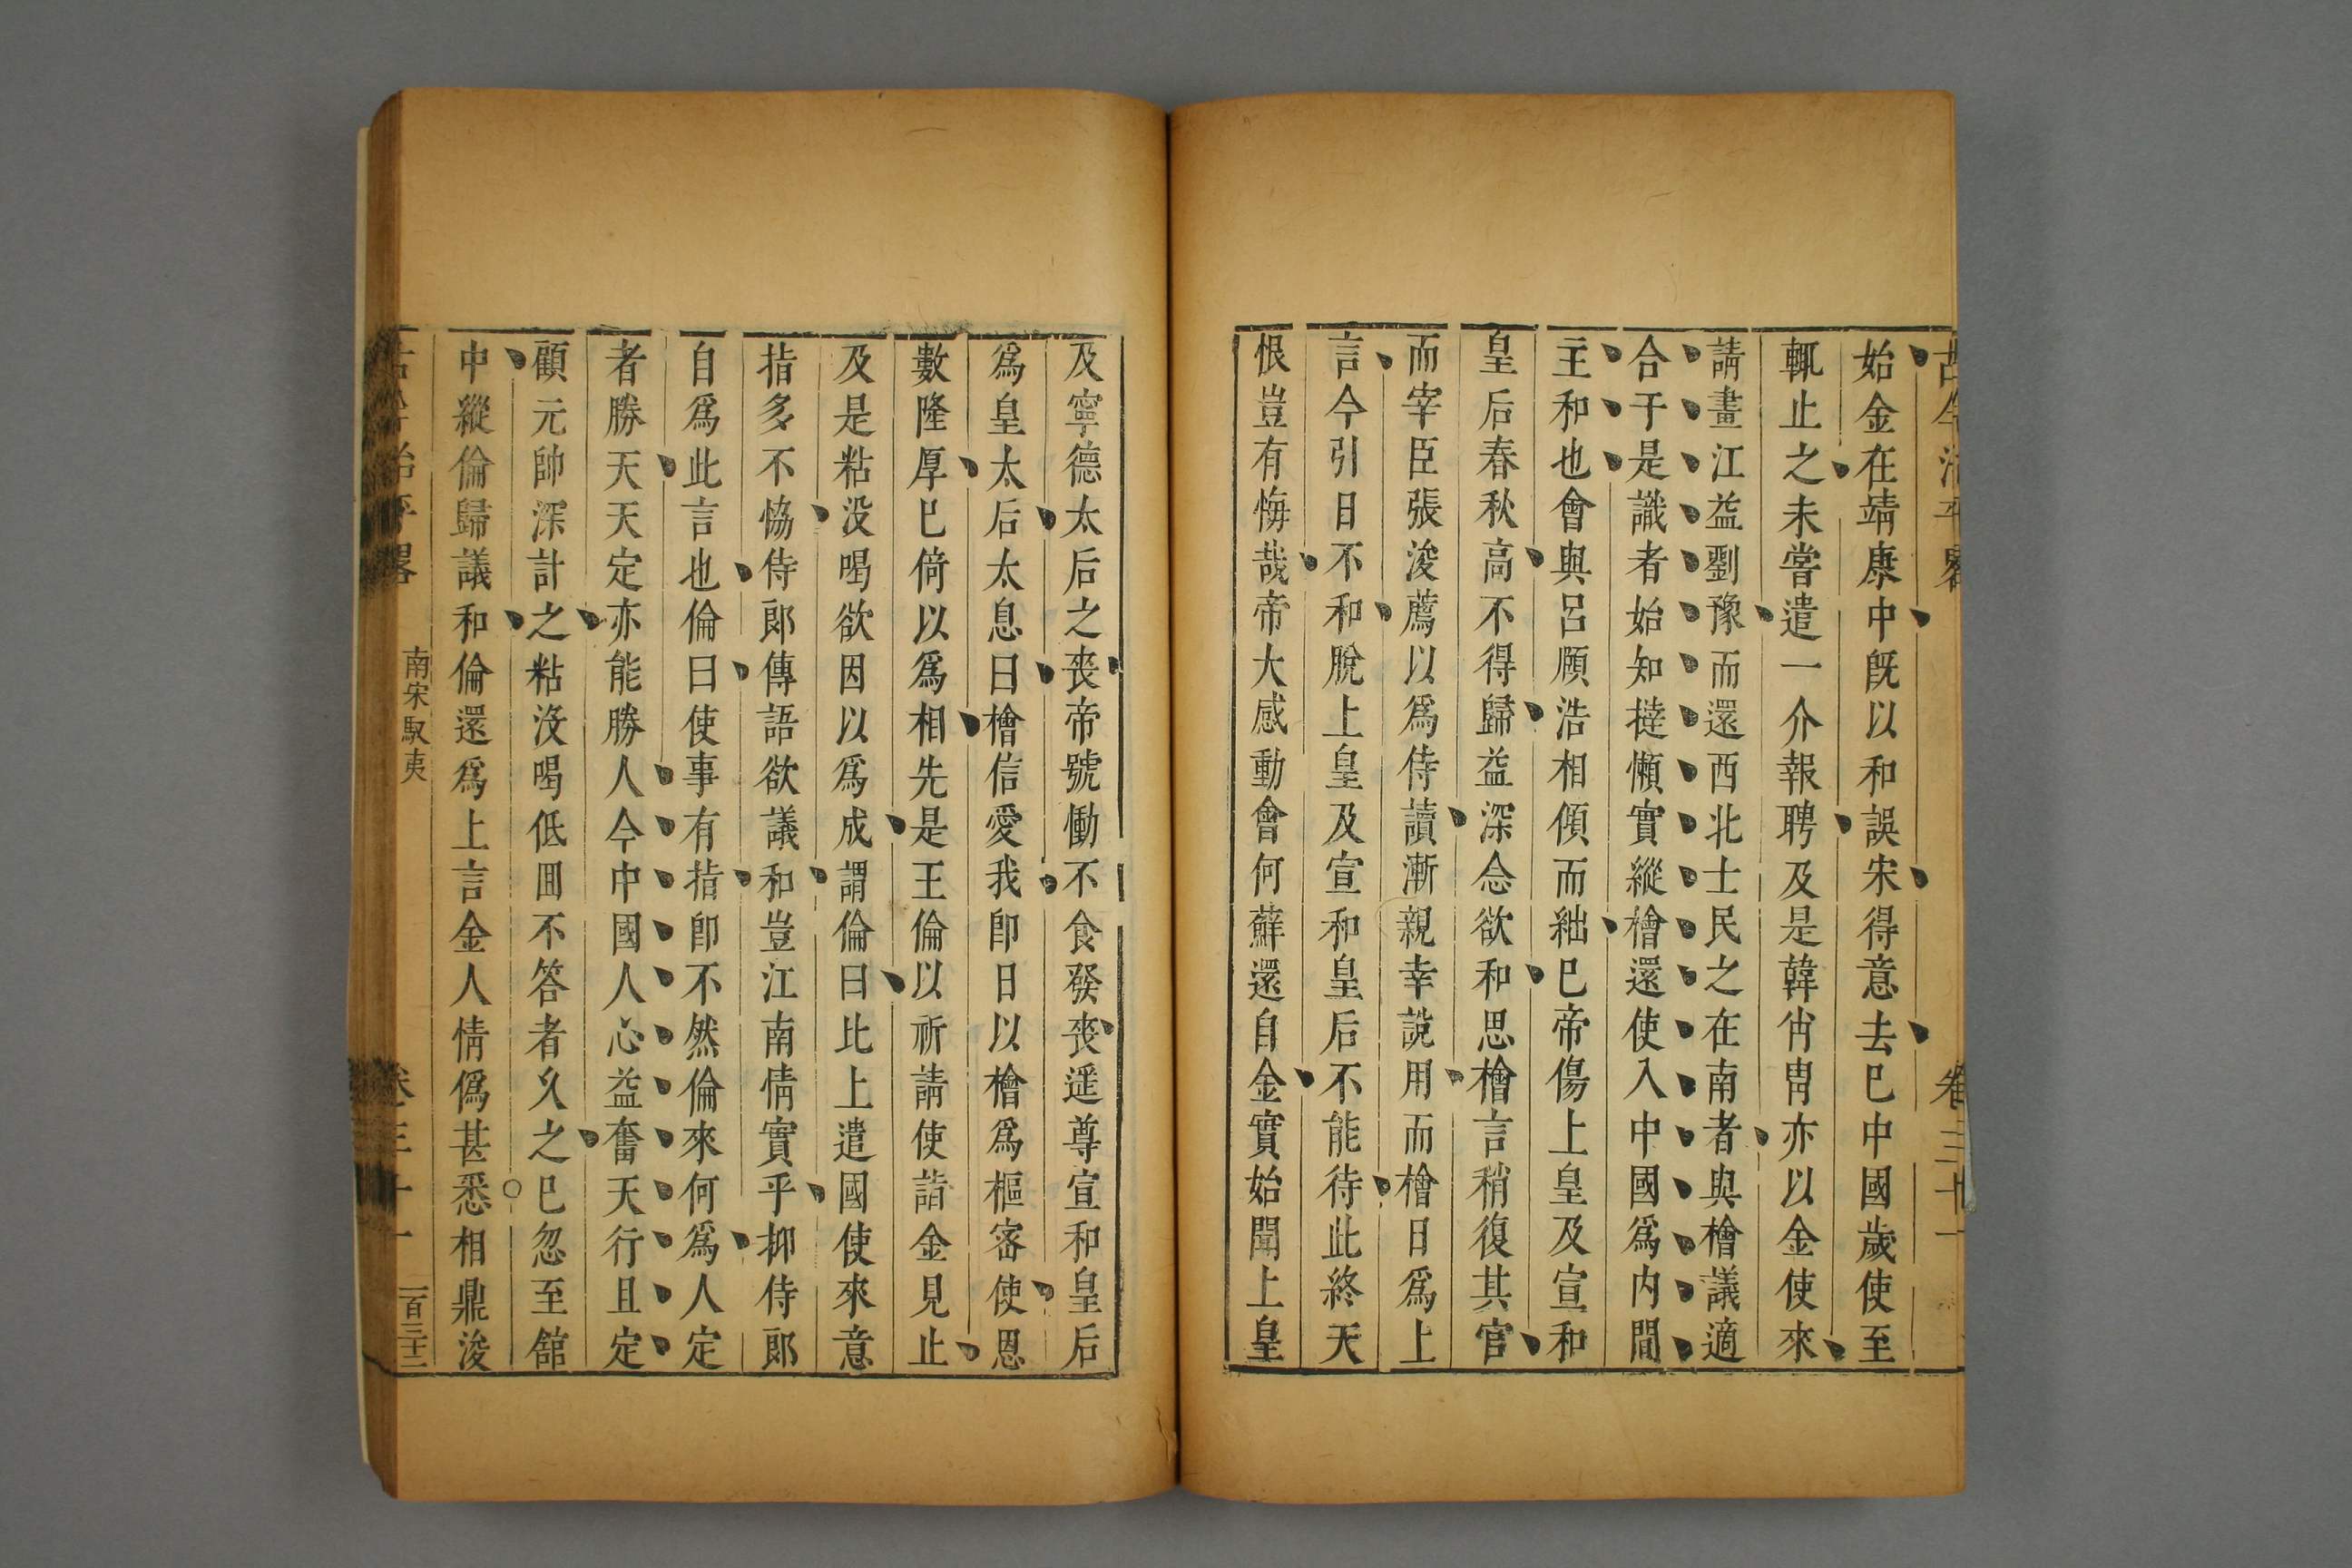 古今治平畧 卷三十一
始金在靖康中旣以和誤宋得意去巳中國歲使至
輒止之未嘗遣一介報聘及是韓肖胄亦以金使來
請畫江益劉豫而還西北士民之在南者與檜議適
合于是識者始知撻懶實縱檜還使入中國爲內間
主和也會與呂頤浩相傾而絀巳帝傷上皇及宣和
皇后春秋高不得歸益深念欲和思檜言稍復其官
而宰臣張浚薦以爲侍讀漸親幸說用而檜日爲上
言今引日不和脫上皇及宣和皇后不能待此終天
恨豈有悔哉帝大感動會何蘚還自金實始聞上皇
及寧德太后之喪帝號慟不食發喪遥尊宣和皇后
爲皇太后太息曰檜信愛我卽日以檜爲樞密使恩
數隆厚巳倚以爲相先是王倫以祈請使詣金見止
及是粘没喝欲因以爲成謂倫曰比上遣國使來意
指多不恊侍郎傳語欲議和豈江南情實乎抑侍郎
自爲此言也倫曰使事有指卽不然倫來何爲人定
者勝天天定亦能勝人今中國人心益奮天行且定
顧元帥深計之粘没喝低回不答者久之巳忽至舘
中縱倫歸議和倫還爲上言金人情僞甚悉相鼎浚
古今治平畧 南宋馭夷 卷三十一 一百三十二